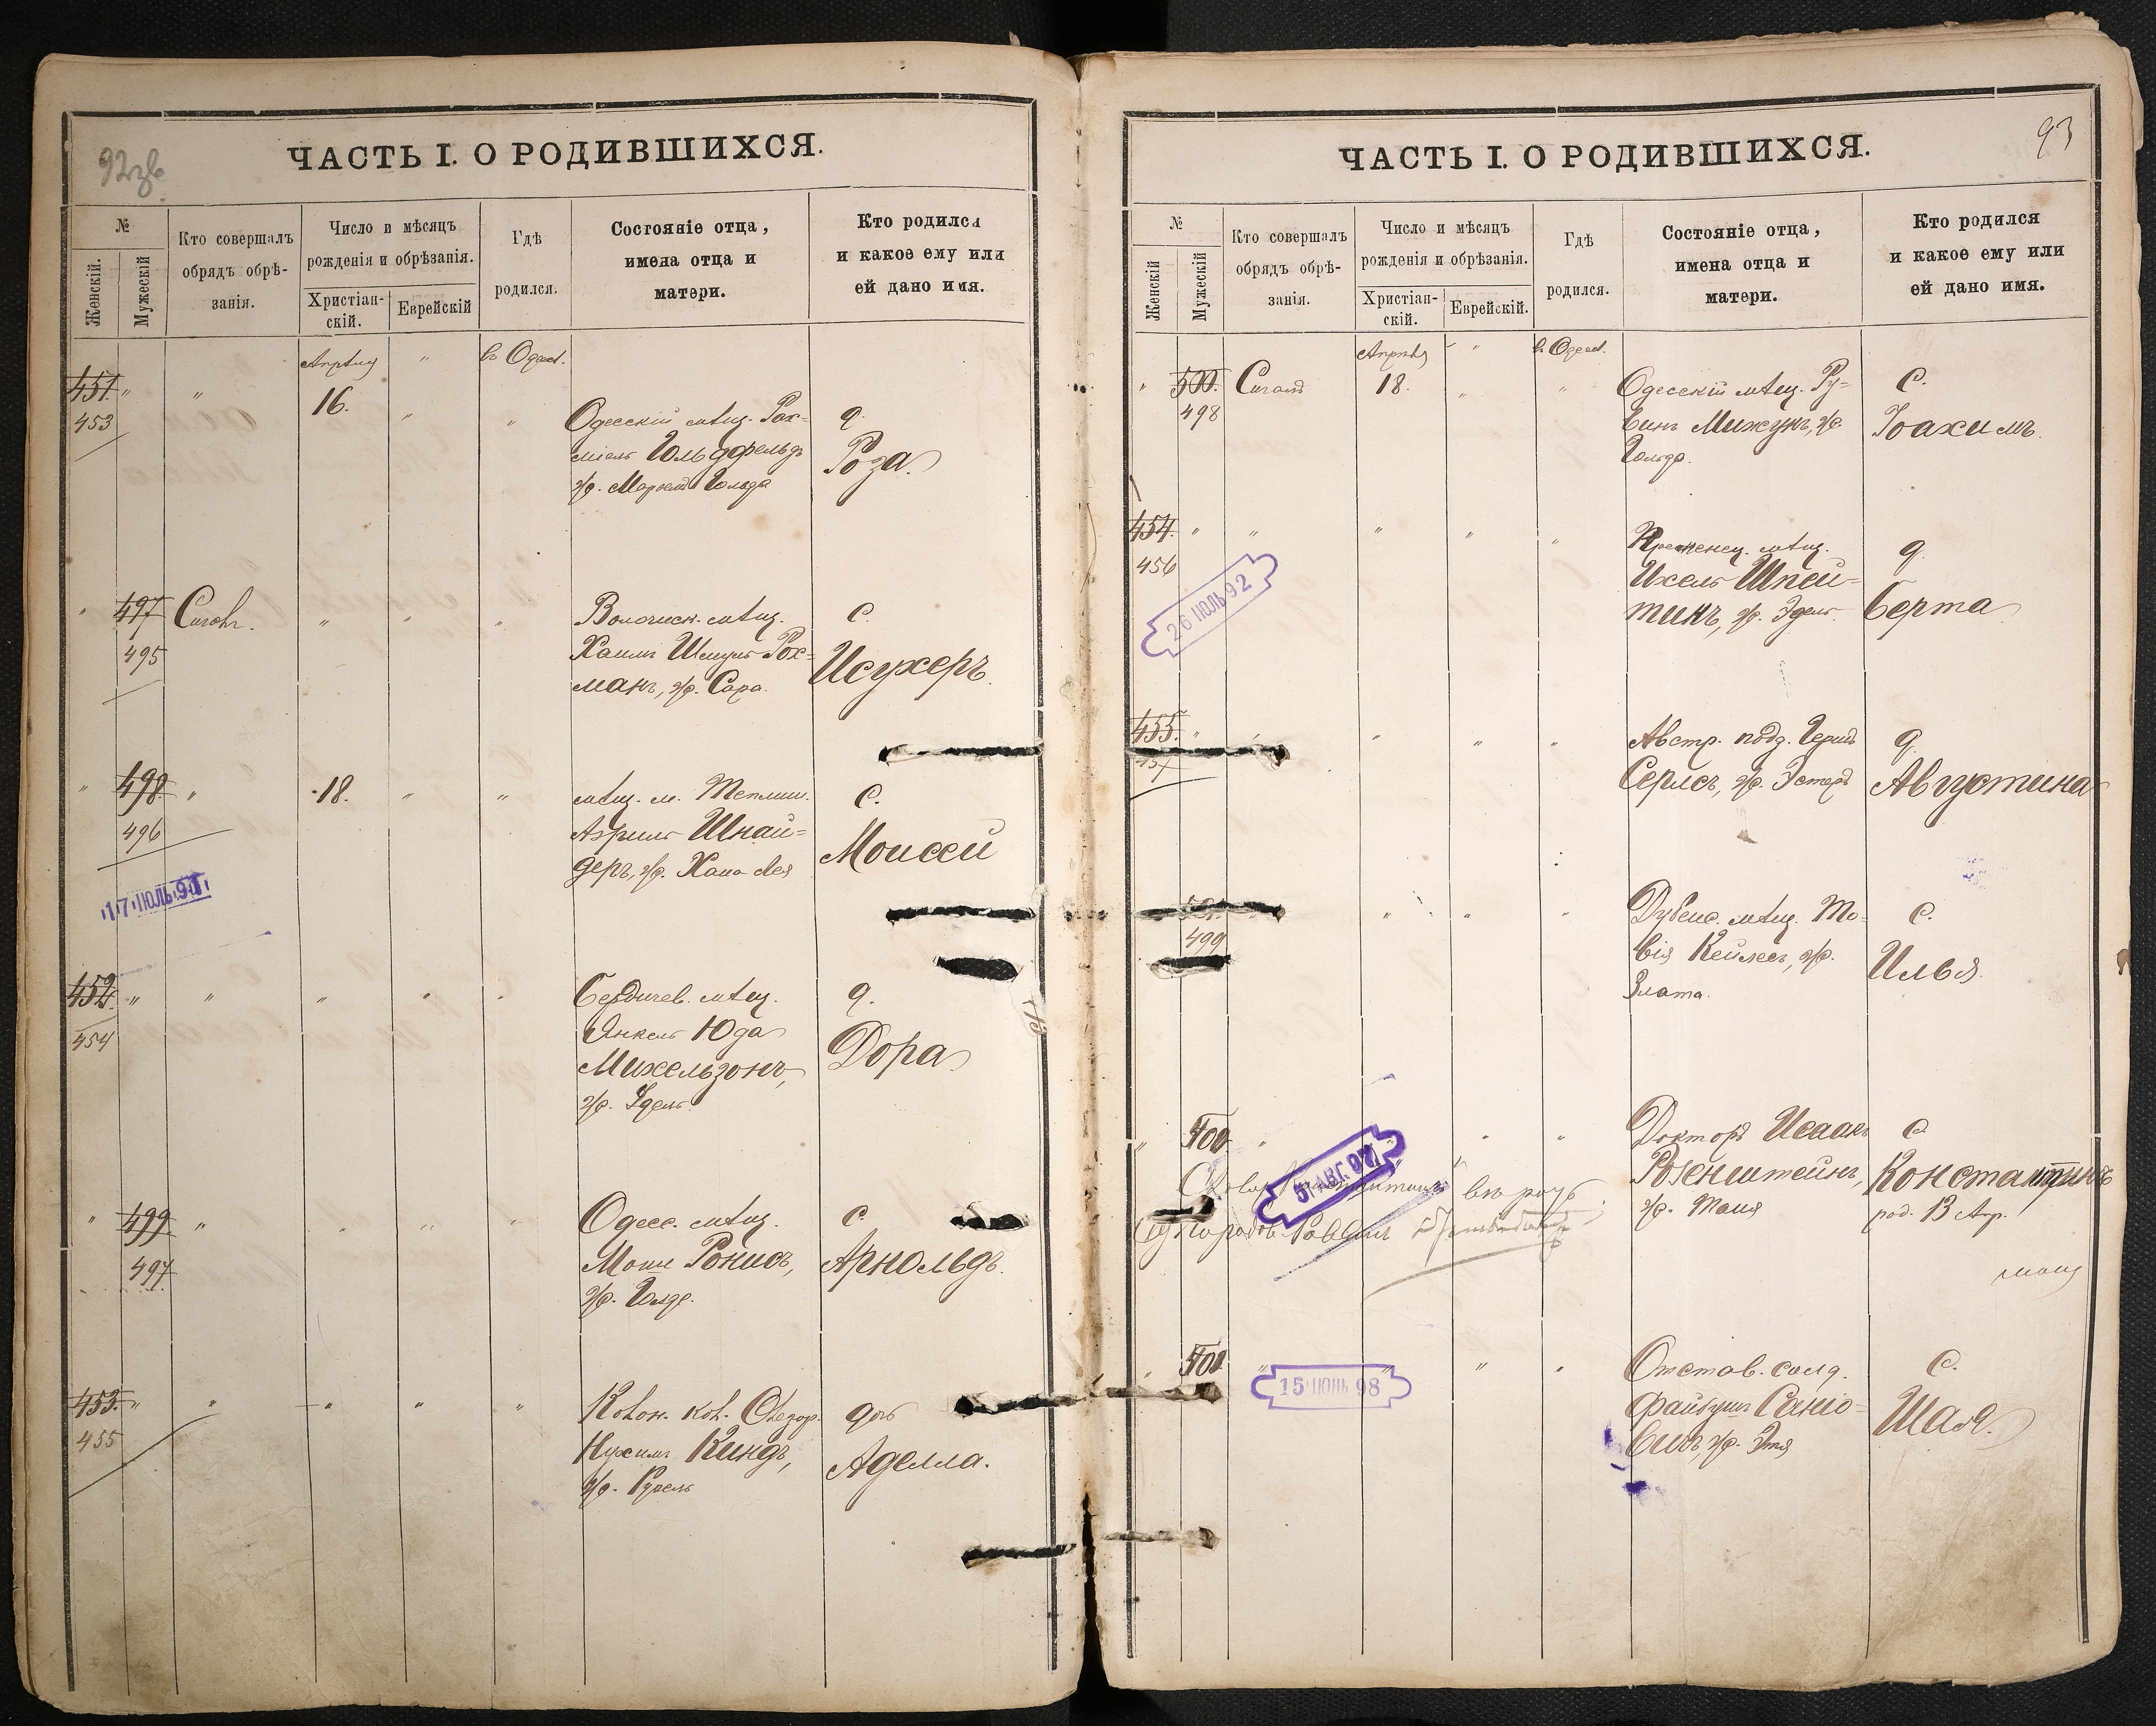 92 об
ЧАСТЬ I. О РОДИВШИХСЯ.
№
Женскій.
Мужескій
Кто совершалъ
обрядъ обрѣ-
занія.
Число и мѣсяцъ
рожденія и обрѣзанія.
Христіан-
скій.
Еврейскій
Гдѣ
родился.
Состояніе отца,
имена отца и
матери.
Кто родился
и какое ему или
ей дано имя.
Апрѣля " въ Одес.
451. " " 16. " "
453
Одесскій мѣщ. Рах-
міель Гольдфельдъ
ж. Голда
д.
Роза
" 497 " " "
495
мѣщ.
Хаимъ Шмуль Рох-
манъ, ж. Сара.
с.
Исухеръ.
" 498. " 18. " "
496
мѣщ. м. Теплик.
Азриль Шнай-
деръ, ж. Хана Лея
с.
Моисей
17 ІЮЛЬ 91
452. " " " " "
454
Бердичев. мѣщ.
Янкель Юда
Михельзонъ,
ж. Эдель.
д.
Дора
" 499 " " " "
497
Одесс. мѣщ.
Моше Ронисъ,
ж. Голде.
с.
Арнольдъ.
453. " " " " "
455
Колон. кол.
Нухимъ Киндъ,
ж. Рузель
дочь
Аделла.
93
ЧАСТЬ I. О РОДИВШИХСЯ.
№
Женскій
Мужескій
Кто совершалъ
обрядъ обрѣ-
занія.
Число и мѣсяцъ
рожденія и обрѣзанія.
Христіан-
скій.
Еврейскій.
Гдѣ
родился.
Состояніе отца,
имена отца и
матери.
Кто родился
и какое ему или
ей дано имя.
Апрѣля " въ Одес.
" 500. 18. " "
498
Одесскій мѣщ. Ру-
бинъ Мижунъ, ж.
Гольда.
с.
Іоахимъ.
454. " " " " "
456
Кременец. мѣщ.
Ихель Шпей-
тинъ, ж. Эдель.
д.
Берта
26 ІЮЛЬ 92
455. " " " "
457
Австр. подд.
Серлсъ, ж. Эстеръ
д.
Августина
501. " " "
499
Дубенс. мѣщ. То-
вія Кейлесъ, ж.
Злата.
с.
Илья.
" 500 " " "
Докторъ Исаакъ
Розенштейнъ,
ж. Таня
с.
Константинъ
род. 13 Апр.
5 АВГ 02
" " " "
15 ІЮНЬ 98
Отстав. солд.
Файвушъ Сеніо-
вичъ, ж. Этя
с.
Шая.